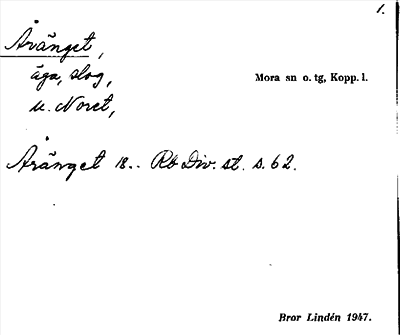 1.
Åvänget,
äga, slog,
Mora sn o. tg, Kopp. l.
u. Noret,
Åvänget 18.. Rb Div. st. s. 62.
Bror Lindén 1947.